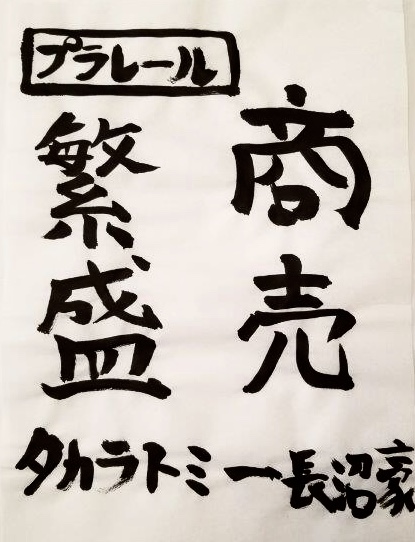 プラレール
商売
繁盛
タカラトミー長沼家